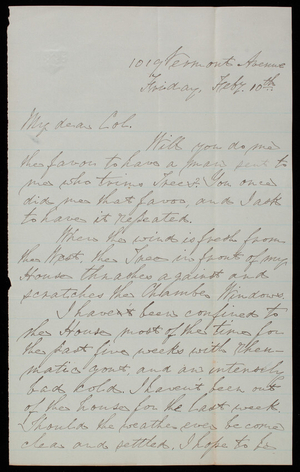 1019 Vermont Avenue
Friday, Feby. 10th
My dear Col.
Will you do me
the favor to have a man sent to
me who trims Trees. You once
did me that favor, and I ask
to have it repeated.
When the wind is fresh from
the West, the Tree in front of my
House thrashes against and
scratches the Chamber Windows.
I have been confined to
the House most of the time for
the past five weeks with Rheu-
matic gout, and an intensely
bad Cold. I havent been out
of the house for the last week
Should the weather ever become
clear and settled, I hope to be